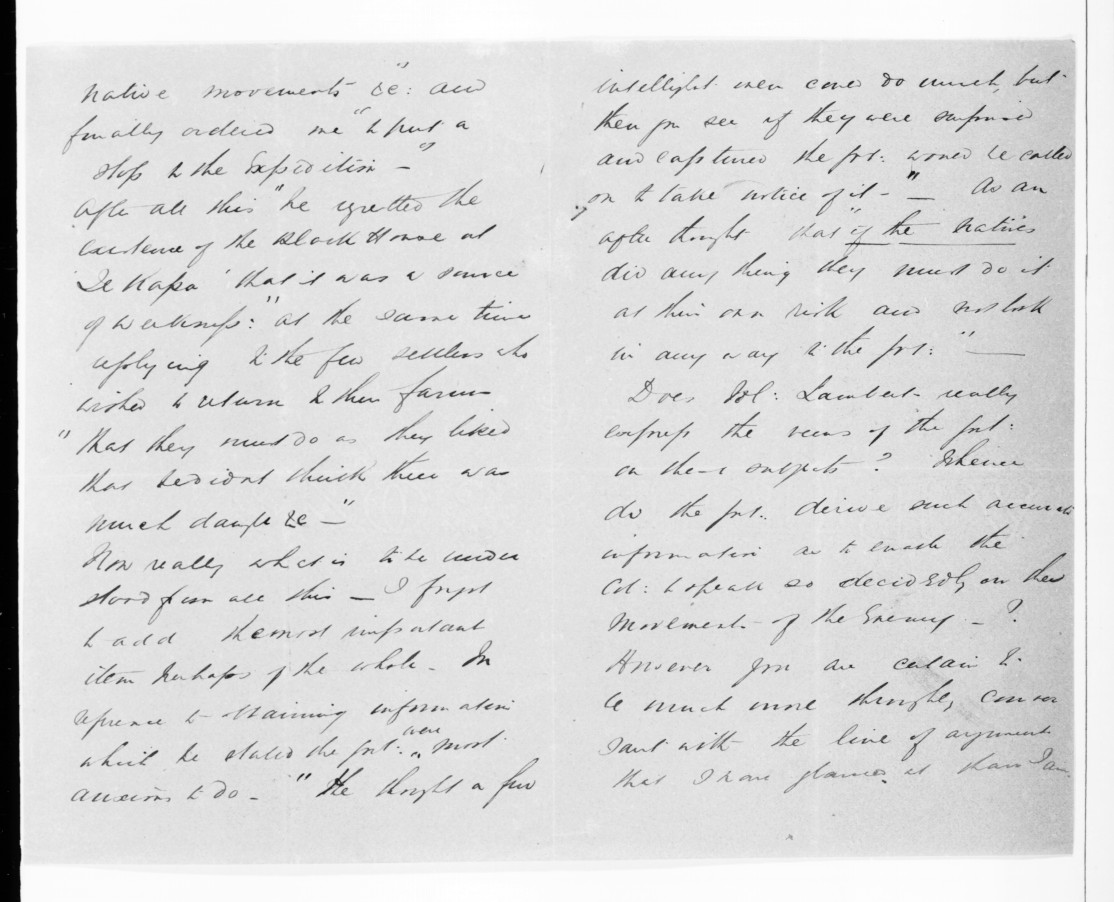 native movements &c": and
finally ordered me "to put a
stop to the Expedition —"
After all this "he regretted the
existence of the Block House at
Te Kapo' that it was a source
of weakness:" at the same time
replying to the few settlers who
wished to return to their farms
"that they must do as they liked
that he didnt think there was
much danger &c —"
Now really what is to be under
stood from all this — I forgot
to add the most important
item perhaps of the whole — In
reference to obtaining information
which he stated the govt: were most
anxious to do — "He thought a few
intelligt men could do much, but
then you see if they were surprised
and captured the govt: would be called
on to take notice of it —" — As an
after thought that "if the natives
did any thing they must do it
at their own risk and not look
in any way to the govt:" —
Does Col: Lambert really
express the views of the govt:
on these subjects? Whence
do the govt: derive such accurate
information as to enable the
Col: to speak so decidedly on the
Movements of the Enemy —?
However you are certain to
be much more thoroughly conver
sant with the line of argument
that I have glanced at than I am.